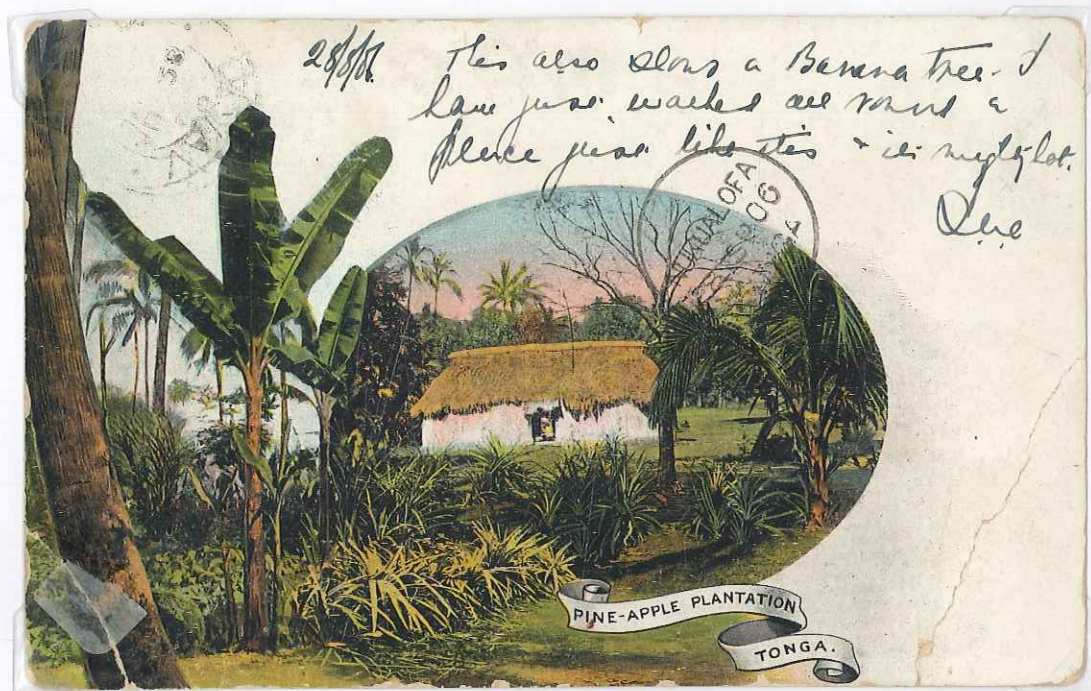 28/8/06
This also shows a Banana tree. I
have just walked all round a
place just like this & its mighty hot.
NUKUALOFA
06
PINE-APPLE PLANTATION
TONGA.